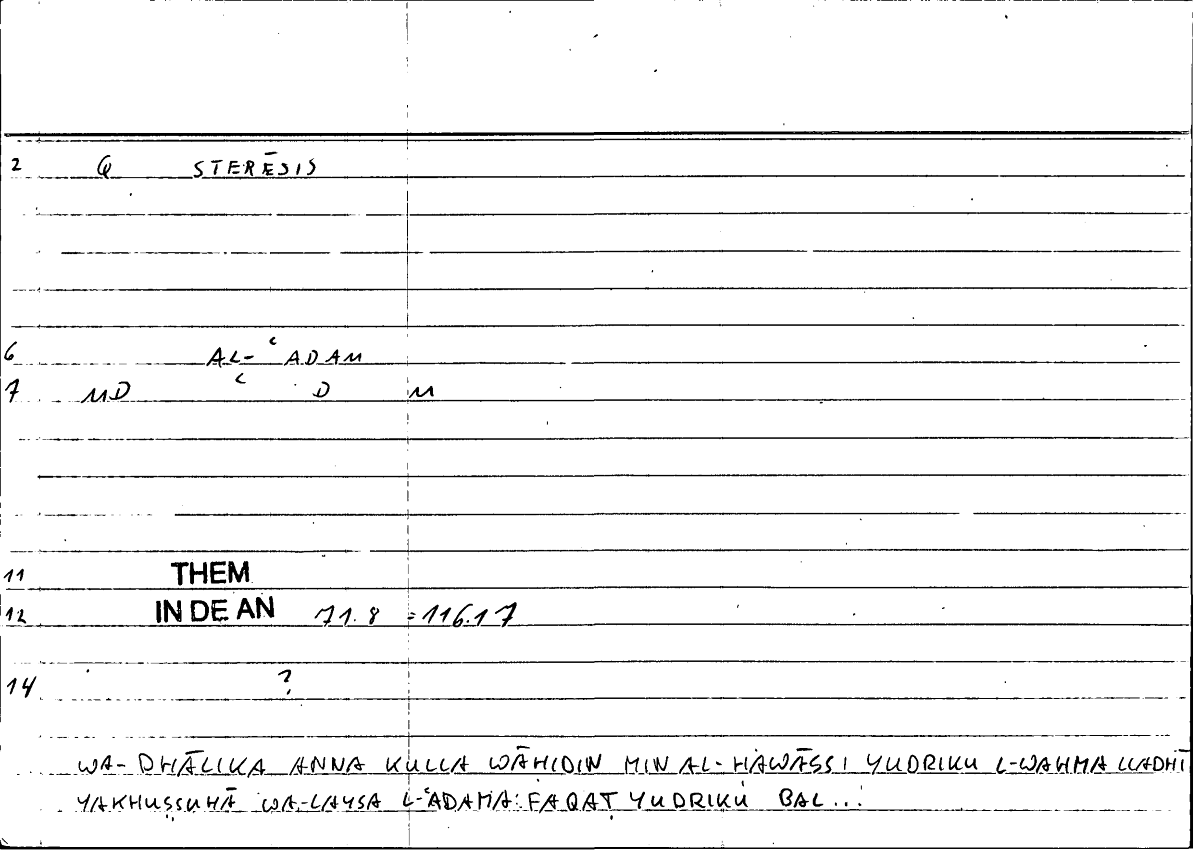 2 Q STERĒSIS
6 AL-ʿADAM
7 MD ʿ D M
11 THEM
12 IN DE AN 71.8 = 116.17
14 ?
WA-DHĀLIKA ANNA KULLA WĀḤIDIN MIN AL-ḤAWĀSSI YUDRIKU L-WAHMA LLADHĪ
YAKHUṢṢUHĀ WA-LAYSA L-ʿADAMA FAQAṬ YUDRIKU BAL...